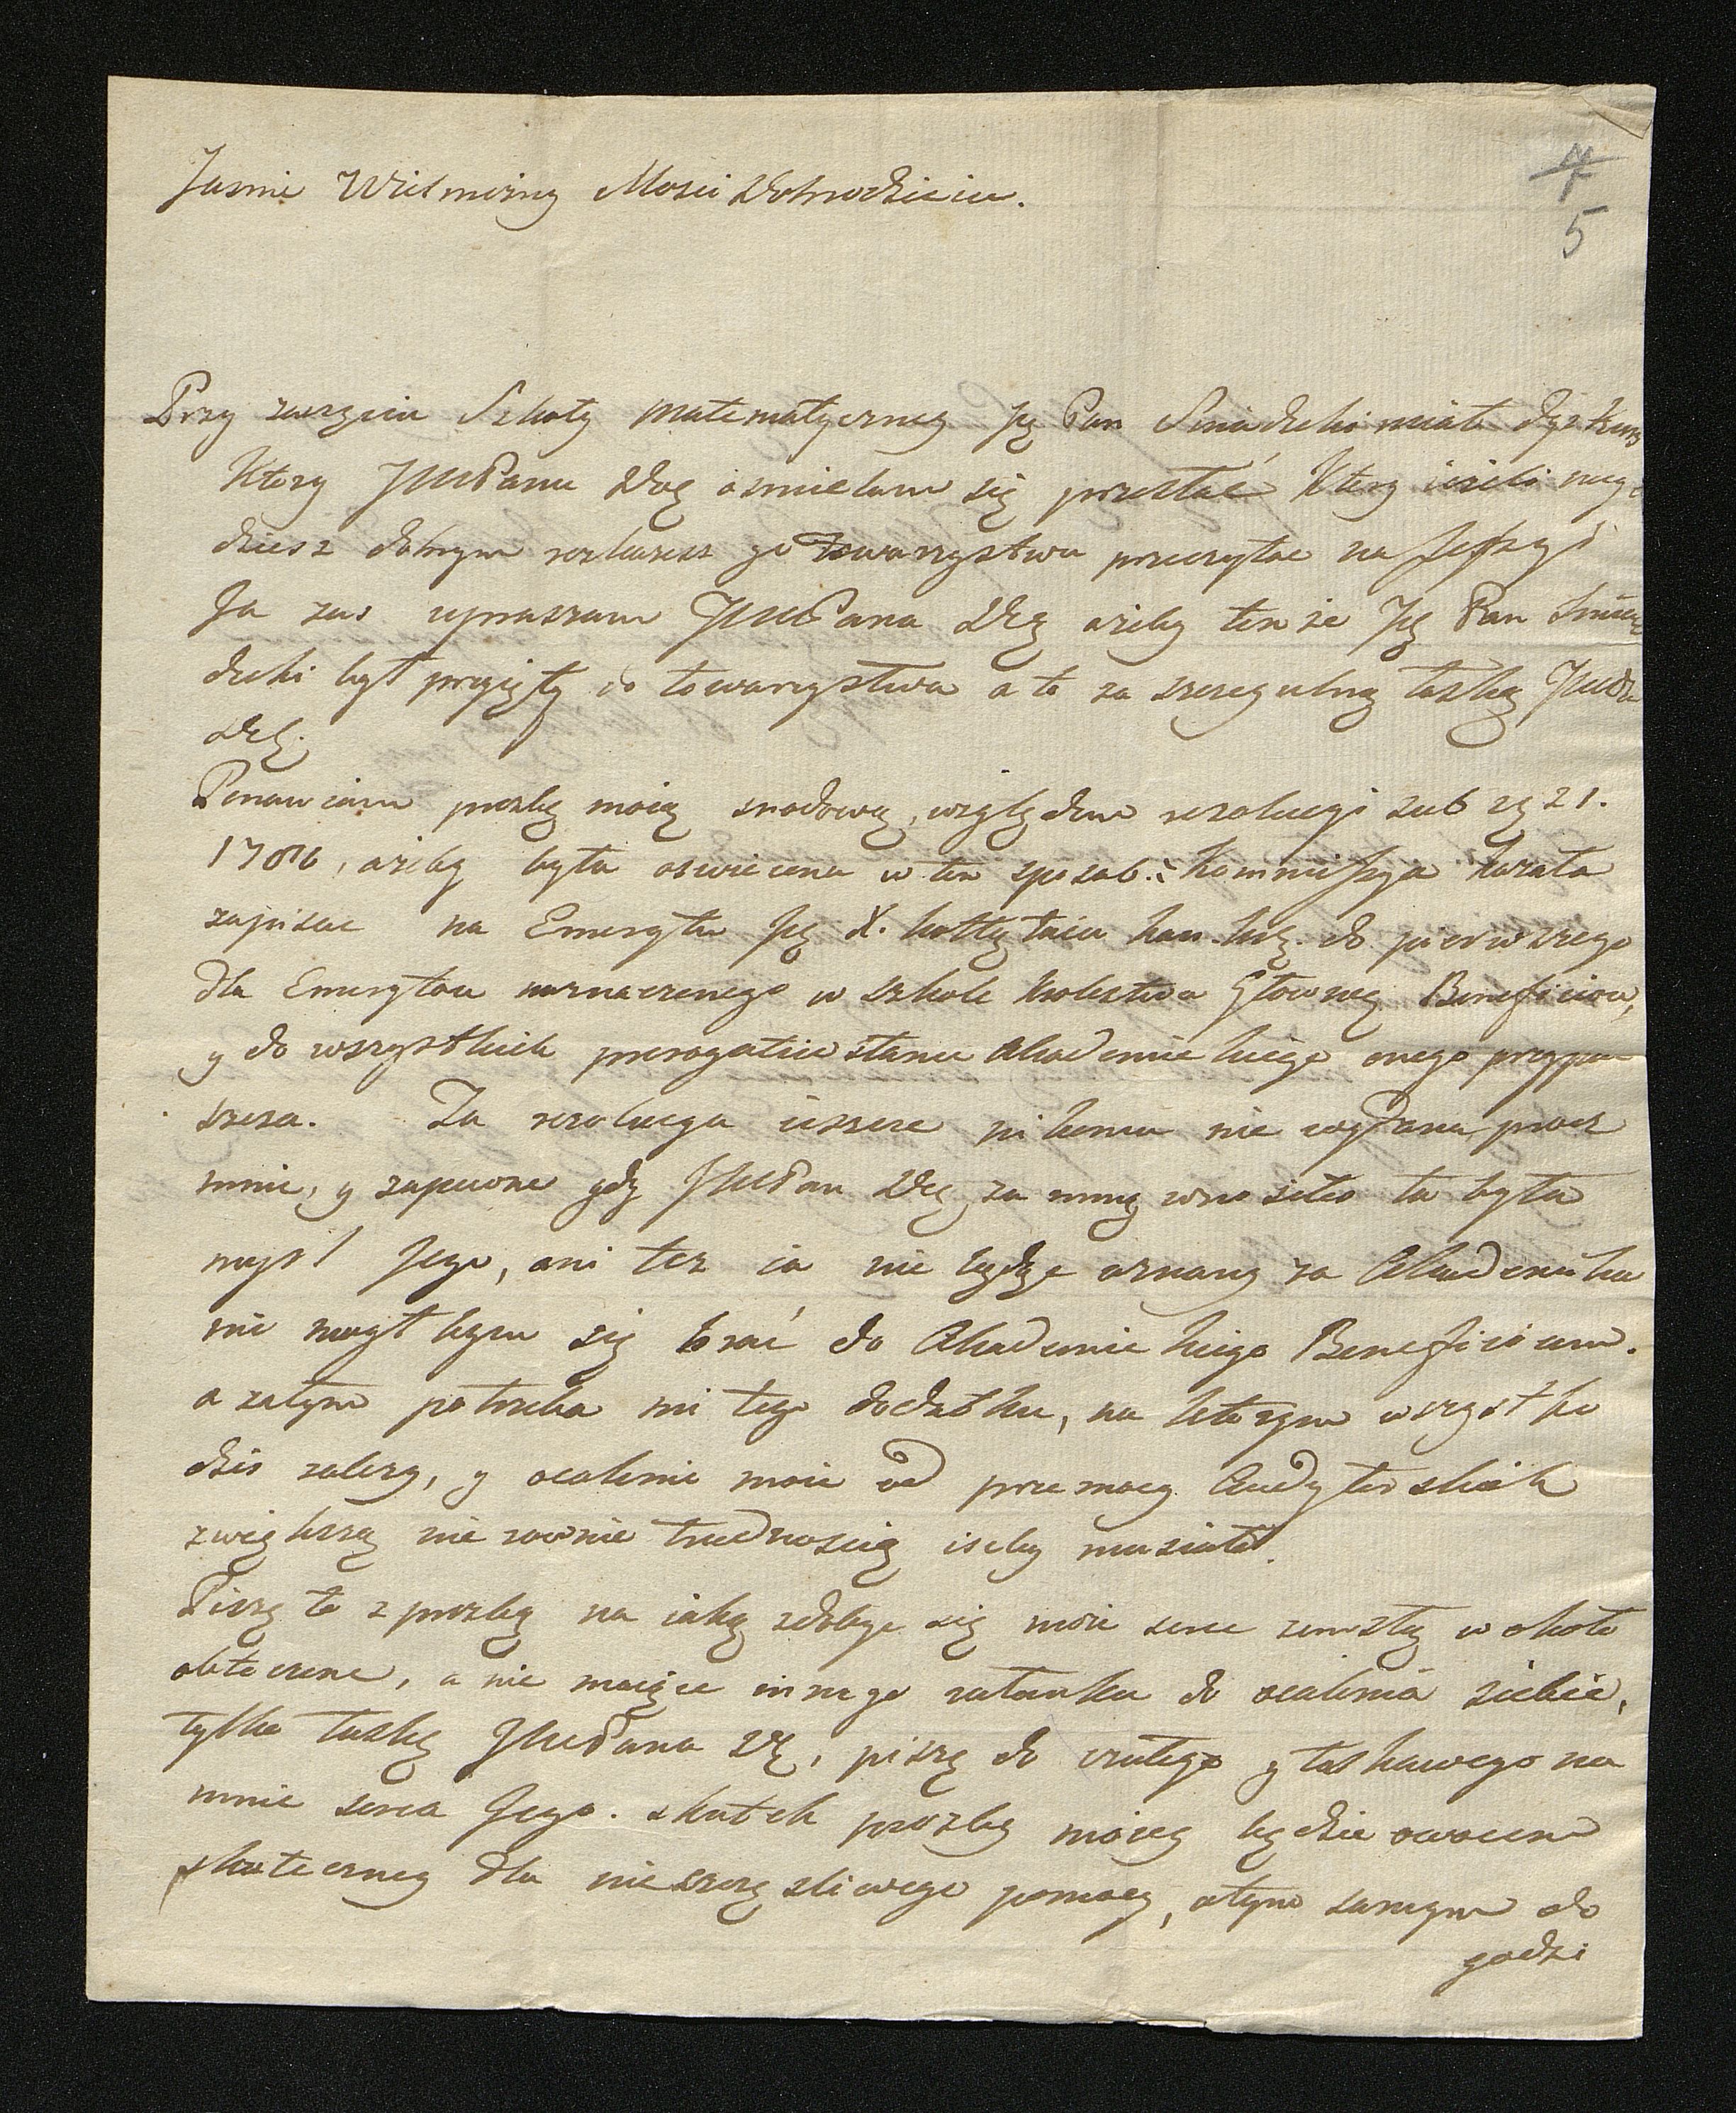 Jasnie Wielmożny Mości Dobrodzieiu.
4
5
Przy zaczęciu Szkoły Matematyczney Ję Pan Sniadecki miał dyskurs
Ktory JMPanu Dog osmielam się przesłać Ktory ieżeli
dziesz dobrym rozkazesz go towarzystwu przeczytac na Sessyi
Ja zas upraszam JMPana Dog ażeby ten że Ję Pan Snia
decki był przyięty do towarzystwa a to za szczegulną łaskę JMPa
Dog.
Ponawiam prozbę moią względem rezolucyi 21.
1786, ażeby była oswiecona w ten sposob: Kommissya kazała
zapisac na Emeryta Ję X. Kołłątaia Kan. Krk. do pierwszego
dla Emerytow w szkole Krolestwa Głowney Beneficium,
y do wszystkich prerogatiw stanu Akademickiego onego przypu
szcza. Ta rezolucya ieszcze nikomu nie wydana procz
mnie, y zapewne gdy JMPan Dog za mną wnosiłes ta była
mysl Jego, ani tez ia nie będąc uznany za Akademika
nie mogł bym się brać do Akademickiego Beneficium.
a zatym potrzeba mi tego dodatku, na ktorym wszystko
dzis zalezy, y ocalenie moie od przemocy Audytorskich
zwiększą nie rownie trudnoscią isćby musiało.
Piszę to z prozbą na iaką zdobyc się moie serce zemstą w około
otoczone, a nie maiące innego ratunku do ocalenia siebie,
tylko łaskę JMPana Dog, piszę do czułego y łaskawego na
mnie serca Jego. skutek prozby moiey będzie owocem
skuteczney dla nieszczęsliwego pomocy, o tym samym do
godzi